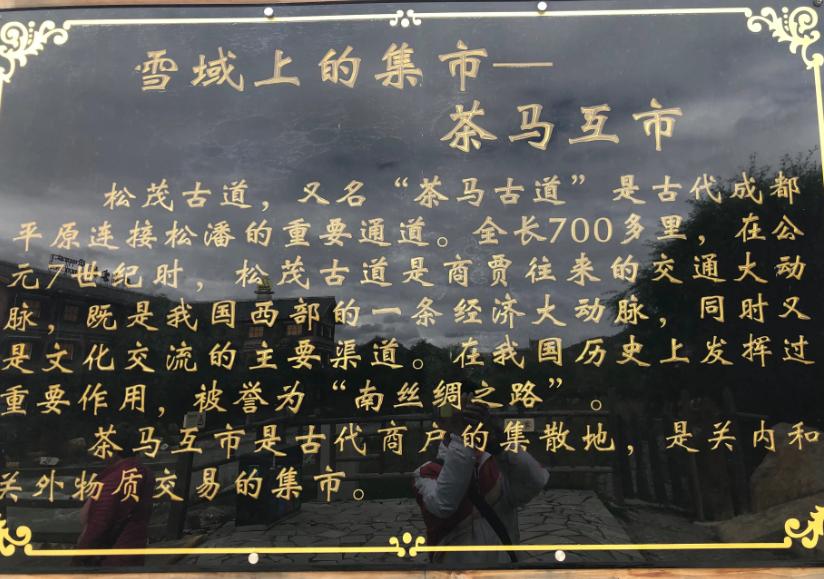 雪域上的集市—
茶马互市
松茂古道，又名“茶马古道”是古代成都
平原连接松潘的重要通道。全长700多里，在公
元7世纪时，松茂古道是商贾往来的交通大动
脉，既是我国西部的一条经济大动脉，同时又
是文化交流的主要渠道。在我国历史上发挥过
重要作用，被誉为“南丝绸之路”。
茶马互市是古代商户的集散地，是关内和
关外物质交易的集市。